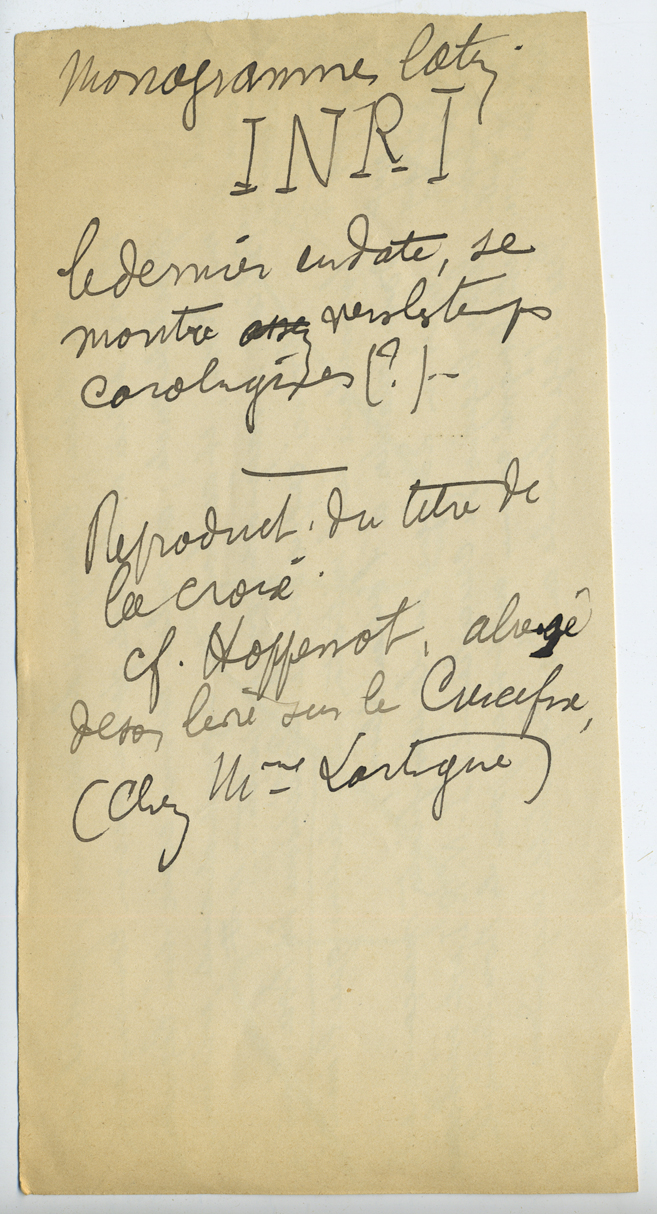 Monogramme latin.
INRI
le dernier en date, se
montre assez vers les temps
carolingiens (?).-
Reproduct. du titre de
la croix.
cf. Hoppenot, abrégé
de son livre sur le Crucifix,
(Chez Mme Lartigue)